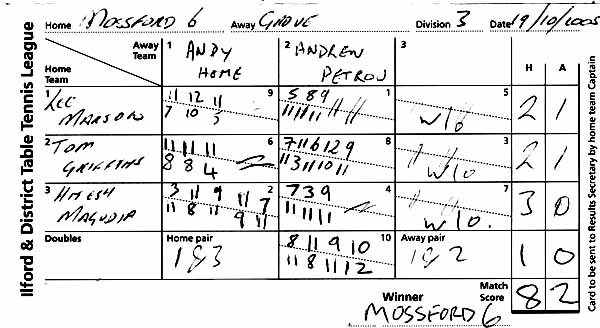 Ilford & District Table Tennis League
Home MOSSFORD 6 Away GROVE Division 3 Date 19/10/2005
Away Team
Home Team
1 ANDY HOME
2 ANDREW PETROU
3
H A
1 LEE MARSON
9
11 12 11
7 10 5
1
5 8 9
11 11 11
5
W/O
2 1
2 TOM GRIFFITHS
6
11 11 11
8 8 4
8
7 11 6 12 9
11 3 11 10 11
3
W/O
2 1
3 HITESH MAGUDIA
2
3 11 9 11 7
11 8 11 9 11
4
7 3 9
11 11 11
7
W/O.
3 0
Doubles
Home pair
1 & 3
10
8 11 9 10
11 8 11 12
Away pair
1 & 2
1 0
Winner MOSSFORD 6
Match Score 8 2
Card to be sent to Results Secretary by home team Captain